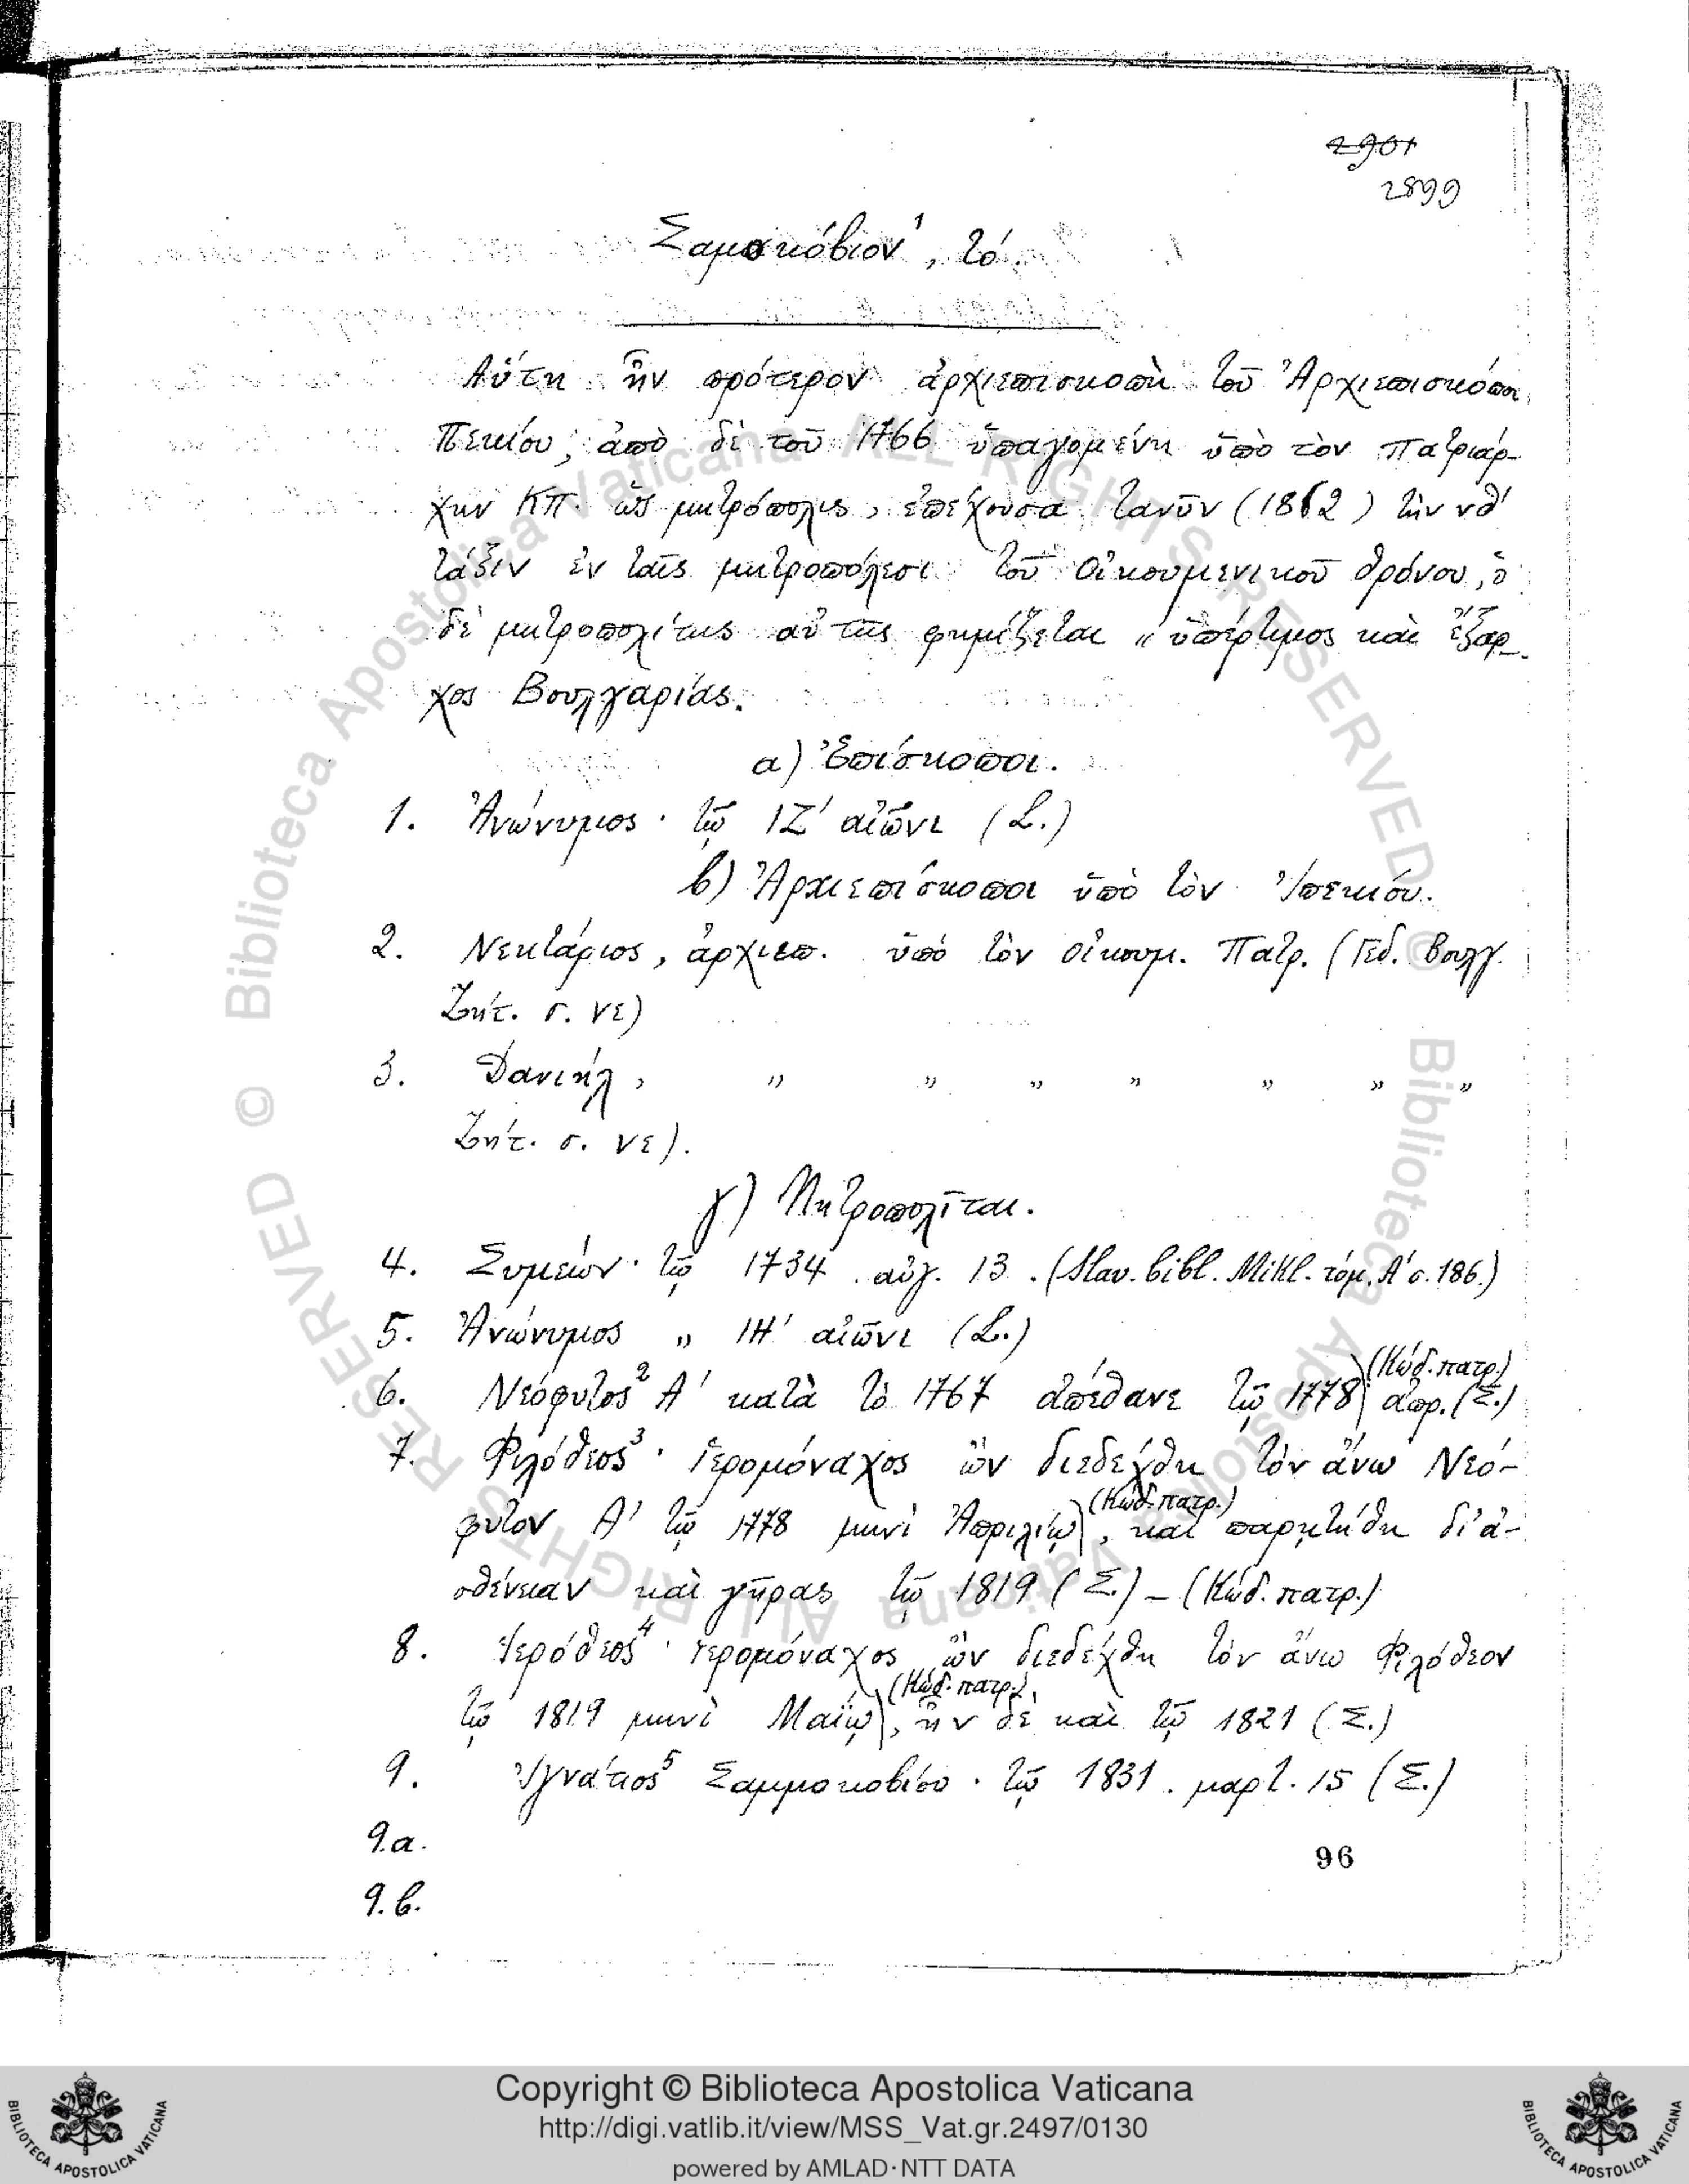 2901
2899
Σαμοκόβιον¹, τό.
Αὕτη ἦν πρότερον ἀρχιεπισκοπὴ τοῦ Ἀρχιεπισκόπου
Πεκίου, ἀπὸ δὲ τοῦ 1766 ὑπαγομένη ὑπὸ τὸν Πατριάρ-
χην ΚΠ. ὡς μητρόπολις, ἐπέχουσα τανῦν (1862) τὴν νθ'
τάξιν ἐν ταῖς μητροπόλεσι τοῦ Οἰκουμενικοῦ θρόνου, ὁ
δὲ μητροπολίτης αὐτῆς φημίζεται „ὑπέρτιμος καὶ ἔξαρ-
χος Βουλγαρίας.
α) Ἐπίσκοποι.
1. Ἀνώνυμος · τῷ ΙΖ' αἰῶνι (L.)
β) Ἀρχιεπίσκοποι ὑπὸ τὸν Ἰπεκίου.
2. Νεκτάριος, ἀρχιεπ. ὑπὸ τὸν οἰκουμ. Πατρ. (Γεδ. Βουλγ.
Ζήτ. σ. νε)
3. Δανιήλ, „ „ „ „ „ „ „
Ζήτ. σ. νε).
γ) Μητροπολῖται.
4. Συμεών · τῷ 1734 αὐγ. 13. (Slav. bibl. Mikl. τόμ. Α' σ. 186.)
5. Ἀνώνυμος „ ΙΗ' αἰῶνι (L.)
6. Νεόφυτος² Α' κατὰ τὸ 1767 ἀπέθανε τῷ 1778 (Κώδ. πατρ.) ἀπρ. (Σ.)
7. Φιλόθεος³ · ἱερομόναχος ὢν διεδέχθη τὸν ἄνω Νεό-
φυτον Α' τῷ 1778 μηνὶ Ἀπριλίῳ (Κώδ. πατρ.), καὶ παρῃτήθη δι' ἀ-
σθένειαν καὶ γῆρας τῷ 1819 (Σ.) – (Κώδ. πατρ.)
8. Ἱερόθεος⁴ · ἱερομόναχος ὢν διεδέχθη τὸν ἄνω Φιλόθεον
τῷ 1819 μηνὶ Μαΐῳ (Κώδ. πατρ.), ἦν δὲ καὶ τῷ 1821 (Σ.)
9. Ἰγνάτιος⁵ Σαμμοκοβίου · τῷ 1831. μαρτ. 15 (Σ.)
9.α.
96
9.β.
Copyright © Biblioteca Apostolica Vaticana
http://digi.vatlib.it/view/MSS_Vat.gr.2497/0130
powered by AMLAD·NTT DATA
BIBLIOTECA APOSTOLICA VATICANA
BIBLIOTECA APOSTOLICA VATICANA
© Biblioteca Apostolica Vaticana ALL RIGHTS RESERVED © Biblioteca Apostolica Vaticana ALL RIGHTS RESERVED